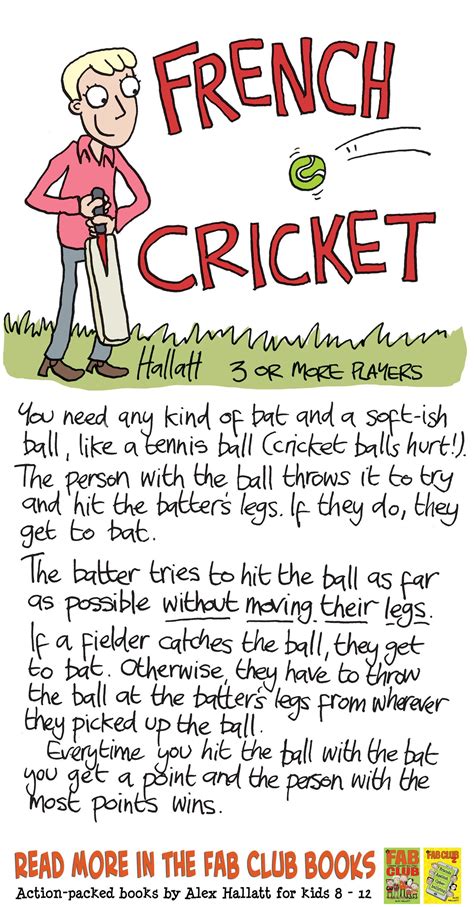 FRENCH
CRICKET
Hallatt 3 OR MORE PLAYERS
You need any kind of bat and a soft-ish
ball, like a tennis ball (cricket balls hurt!).
The person with the ball throws it to try
and hit the batter's legs. If they do, they
get to bat.
The batter tries to hit the ball as far
as possible without moving their legs.
If a fielder catches the ball, they get
to bat. Otherwise, they have to throw
the ball at the batter's legs from wherever
they picked up the ball.
Everytime you hit the ball with the bat
you get a point and the person with the
most points wins.
READ MORE IN THE FAB CLUB BOOKS
Action-packed books by Alex Hallatt for kids 8 - 12
FAB
CLUB
FAB CLUB